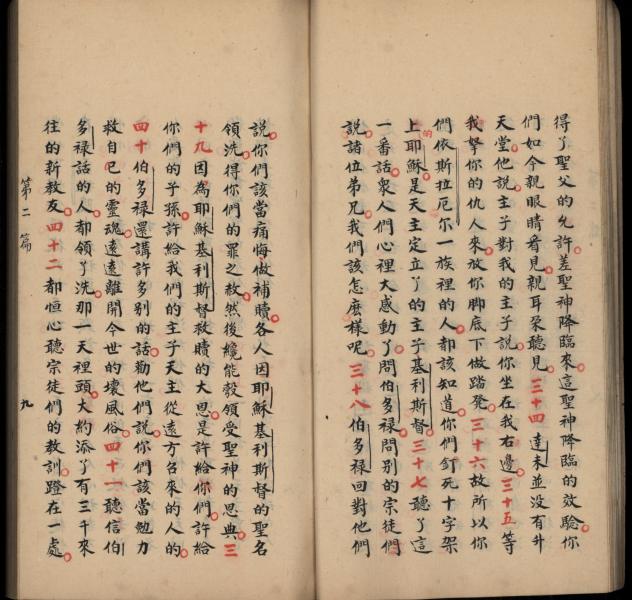 得了聖父的允許差聖神降臨來這聖神降臨的效驗你
們如今親眼睛看見親耳朶聽見三十四達未並沒有升
天堂他說主子對我的主子說你坐在我右邊三十五等
我拏你的仇人來放你脚底下做踏凳三十六故所以你
們依斯拉厄尔一族裡的人都該知道你們釘死十字架
上的耶穌是天主定立了的主子基利斯督三十七聽了這
一番話衆人們心裡大感動了問伯多禄問別的宗徒們
說諸位弟兄我們該怎麽樣呢三十八伯多禄回對他們
說你們該當痛悔做補贖各人因耶穌基利斯督的聖名
領洗得你們的罪之赦然後纔能彀領受聖神的恩典三
十九因為耶穌基利斯督救贖的大恩是許給你們許給
你們的子孫許給我們的主子天主從遠方召來的人的
四十伯多禄還講許多別的話勸他們說你們該當勉力
救自己的靈魂遠遠離開今世的壞風俗四十一聽信伯
多禄話的人都領了洗那一天裡頭大約添了有三千來
往的新教友四十二都恒心聽宗徒們的教訓蹬在一處
第二篇 九